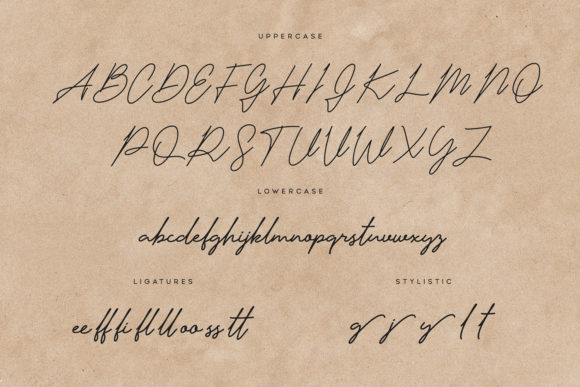 UPPERCASE
ABCDEFGHIJKLMNO
PQRSTUVWXYZ
LOWERCASE
abcdefghijklmnopqrstuvwxyz
LIGATURES
ee ff fi fl ll oo ss tt
STYLISTIC
g j y l t